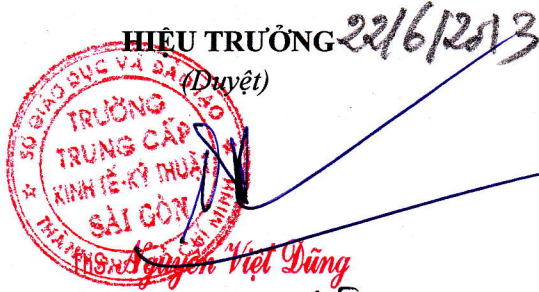 HIỆU TRƯỞNG 22/6/2013
(Duyệt)
SỞ GIÁO DỤC VÀ ĐÀO TẠO
TRƯỜNG
TRUNG CẤP
KINH TẾ-KỸ THUẬT
SÀI GÒN
ThS. Nguyễn Việt Dũng